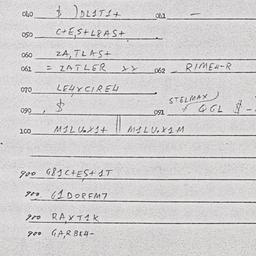 040 $ )DL1T1+ 041 -
050 C+E,S+L8AS+
060 2A,TLAS+
061 = 2ATLER >> 062 RIME4-R
070 LE4XCIRE4
090 , $ 091 STELMAX / GGL $ -
100 M1LU.X1+ || M1LU.X1M
900 G81C+E,S+1T
900 G1DOREM7
900 RAXT1K
900 GA,RBK4-